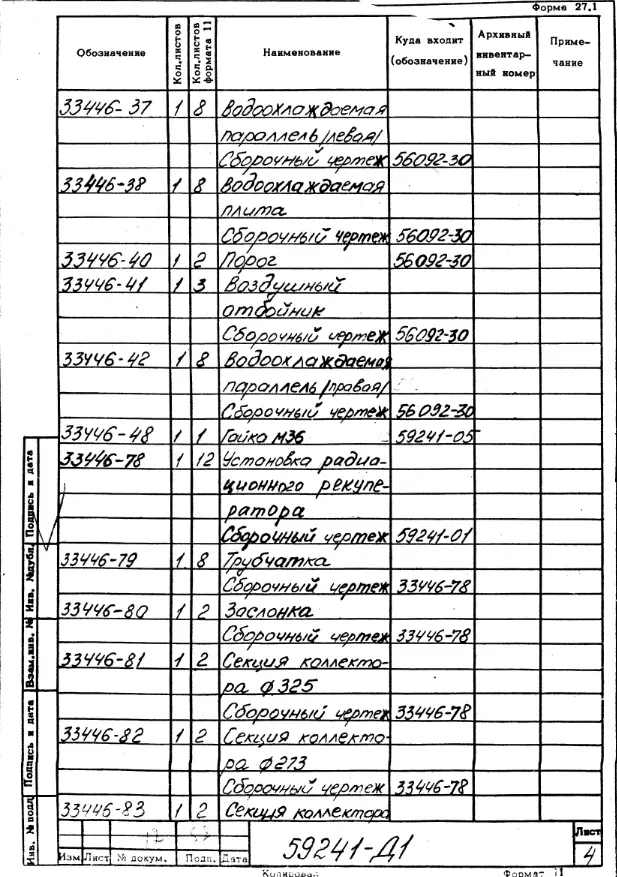 Форма 27.1
Обозначение Кол.листов Кол.листов формата 11 Наименование Куда входит (обозначение) Архивный инвентар- ный номер Приме- чание
33446-37 1 8 Водоохлаждаемая
параллель /левая/
Сборочный чертеж 56092-30
33446-38 1 8 Водоохлаждаемая
плита
Сборочный чертеж 56092-30
33446-40 1 2 Порог 56092-30
33446-41 1 3 Воздушный
отбойник
Сборочный чертеж 56092-30
33446-42 1 8 Водоохлаждаемая
параллель /правая/
Сборочный чертеж 56092-30
33446-48 1 1 Гайка М36 59241-05
33446-78 1 12 Установка радиа-
ционного рекупе-
ратора
Сборочный чертеж 59241-01
33446-79 1 8 Трубчатка
Сборочный чертеж 33446-78
33446-80 1 2 Заслонка
Сборочный чертеж 33446-78
33446-81 1 2 Секция коллекто-
ра ф325
Сборочный чертеж 33446-78
33446-82 1 2 Секция коллекто-
ра ф273
Сборочный чертеж 33446-78
33446-83 1 2 Секция коллектора
Подпись и дата
Инв. №дубл.
Взам.инв. №
Подпись и дата
Инв. №подл
Изм Лист № докум. Подп. Дата
59241-Д1
Лист
4
Копировал Формат 11